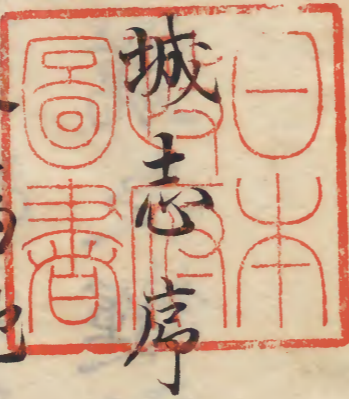 城志序
日本
政府
圖書